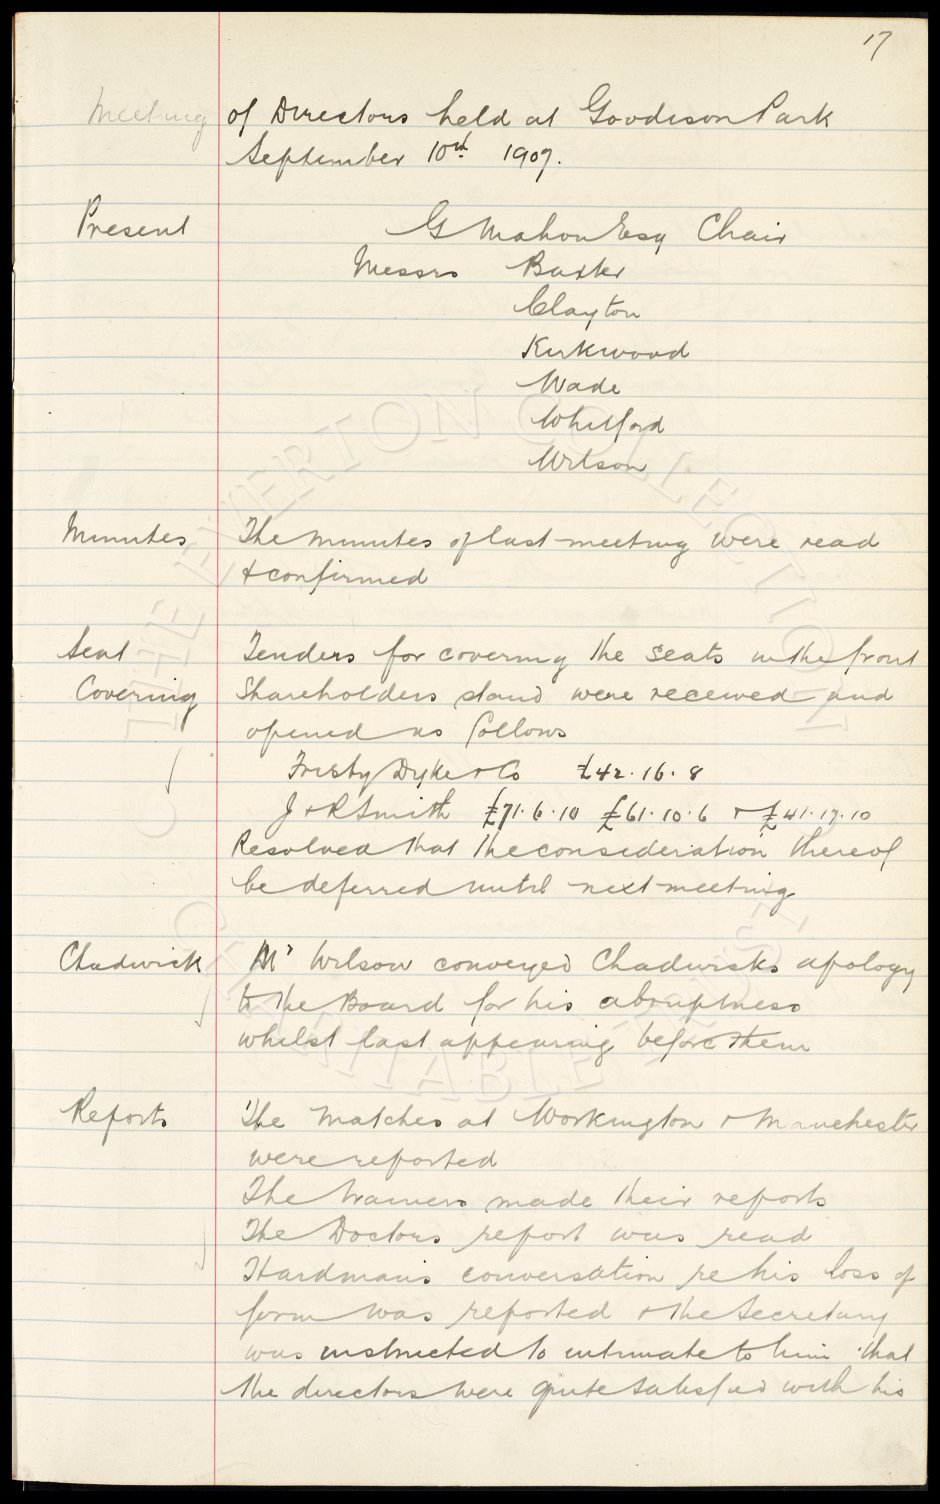 17
Meeting of Directors held at Goodison Park
September 10th 1907.
Present G Mahon Esq Chair
Messrs Baxter
Clayton
Kirkwood
Wade
Whitford
Wilson
Minutes The minutes of last meeting were read
& confirmed
Seat Tenders for covering the seats in the front
Covering Shareholders stand were received and
opened as follows
Frisby Dyke & Co £42.16.8
J & R Smith £71.6.10 £61.10.6 & £41.17.10
Resolved that the consideration thereof
be deferred until next meeting
Chadwick Mr Wilson conveyed Chadwicks apology
to the Board for his abruptness
whilst last appearing before them
Reports The matches at Workington & Manchester
were reported
The trainers made their reports
The Doctors report was read
Hardman's conversation re his loss of
form was reported & the Secretary
was instructed to intimate to him that
the directors were quite satisfied with his
THE EVERTON COLLECTION
CHARITABLE TRUST